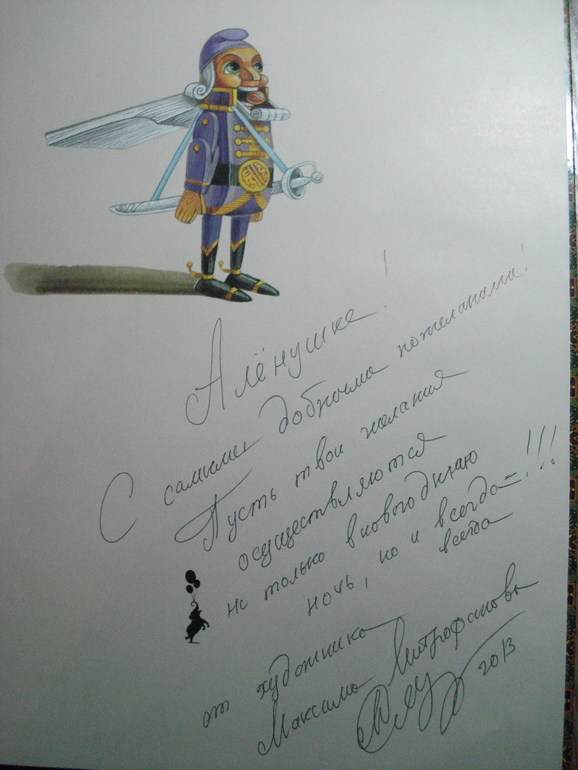 Алёнушке!
С самыми добрыми пожеланиями!
Пусть твои желания
осуществляются
не только в новогоднюю
ночь, но и всегда-
всегда!!!
от художника
Максима Митрофанова
2013